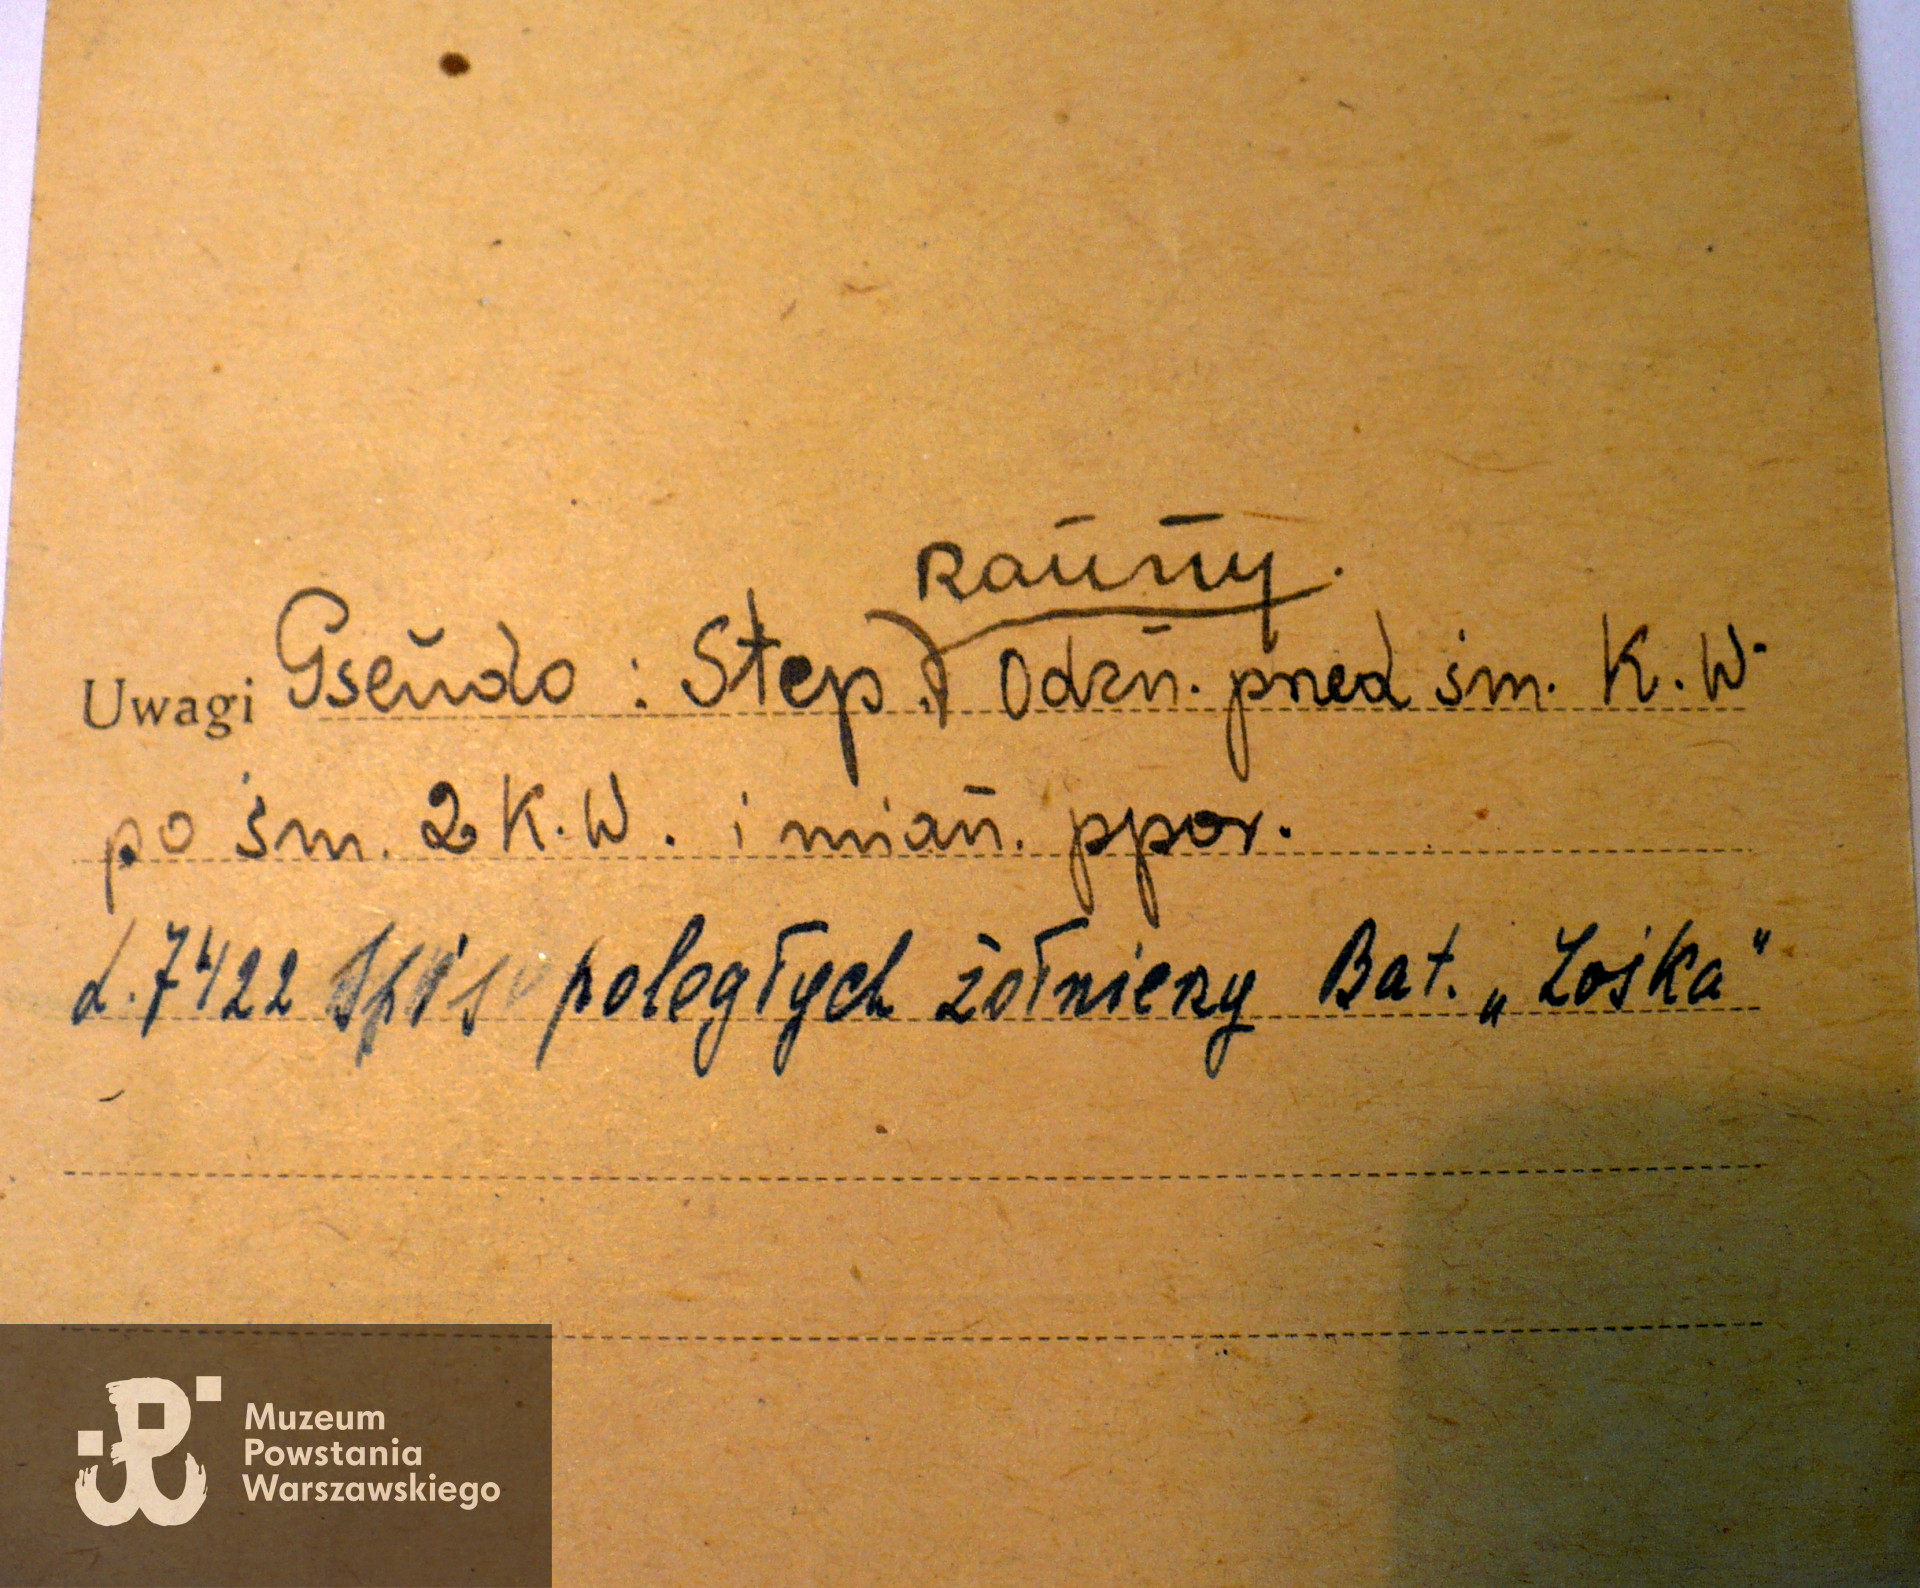 Ranny.
Uwagi Pseudo: Step. Odzn. przed śm. K.W.
po śm. 2 K.W. i mian. ppor.
L.7422 Spis poległych żołnierzy Bat. „Zośka"
Muzeum
Powstania
Warszawskiego